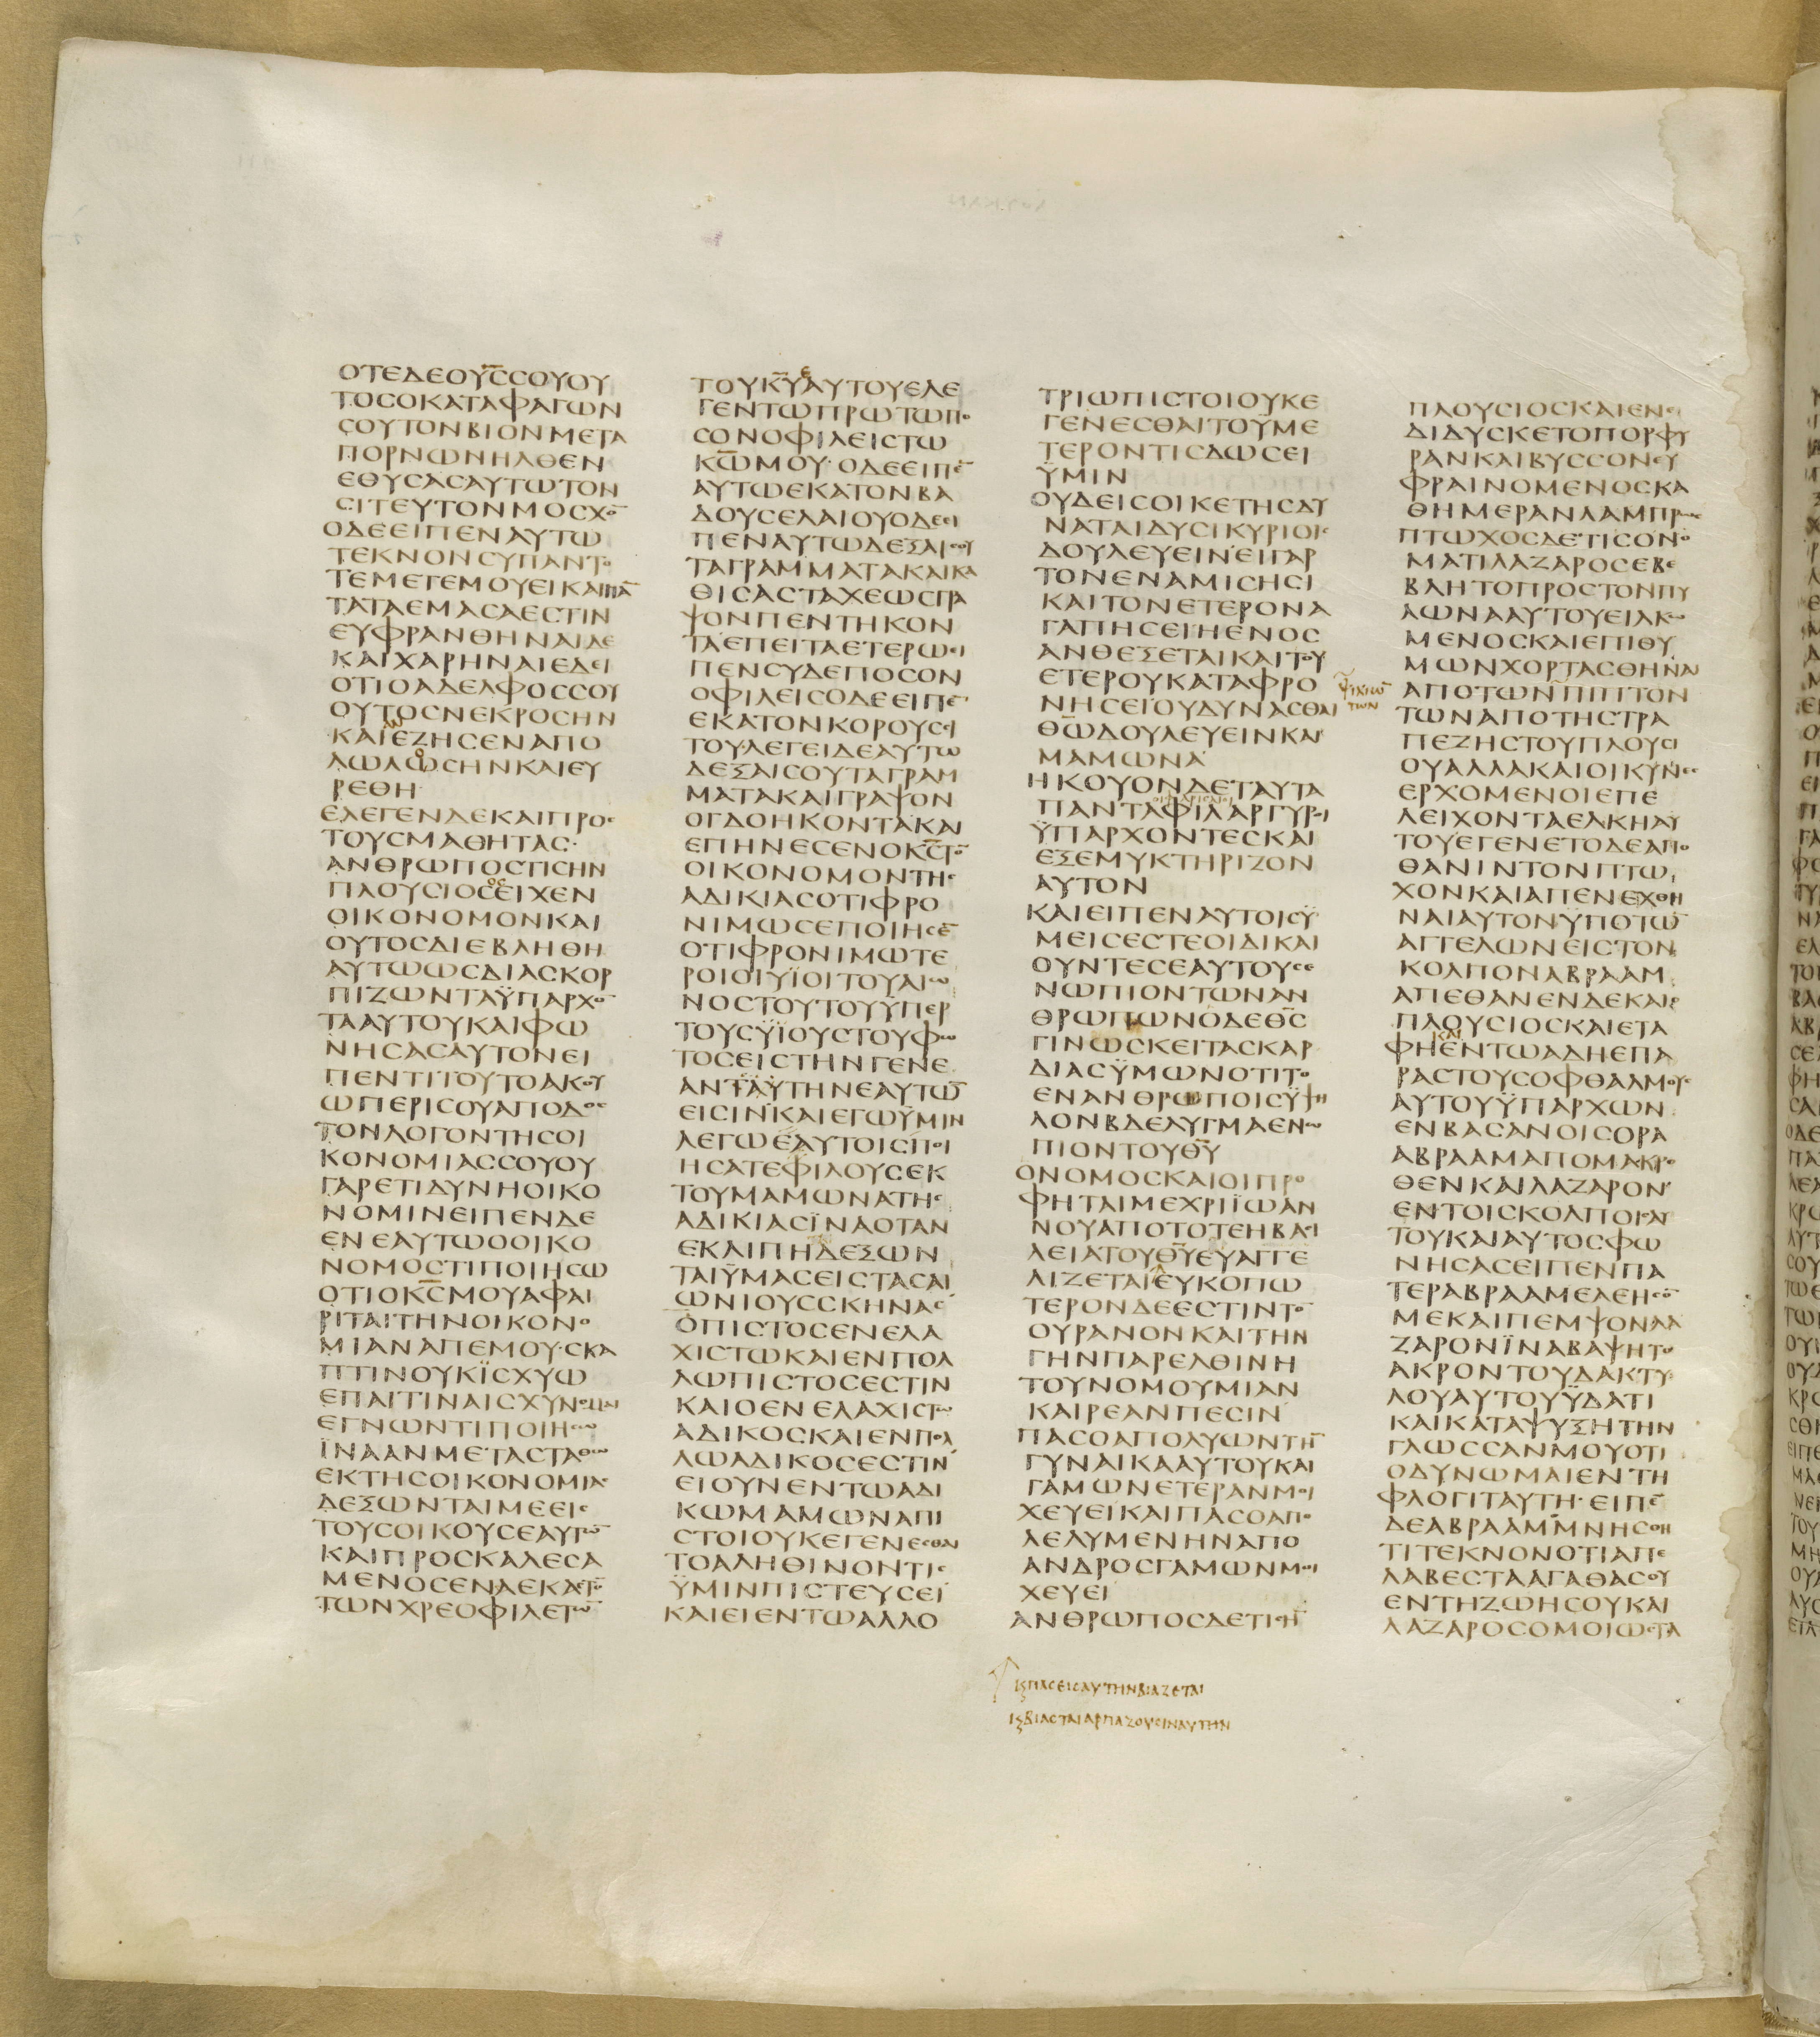 ΟΤΕΔΕΟΥ̅Ϲ̅ϹΟΥΟΥ
ΤΟϹΟΚΑΤΑΦΑΓΩΝ
ϹΟΥΤΟΝΒΙΟΝΜΕΤΑ
ΠΟΡΝΩΝΗΛΘΕΝ
ΕΘΥϹΑϹΑΥΤΩΤΟΝ
ϹΙΤΕΥΤΟΝΜΟϹΧΟ̅
ΟΔΕΕΙΠΕΝΑΥΤΩ
ΤΕΚΝΟΝϹΥΠΑΝΤΟ
ΤΕΜΕΤΕΜΟΥΕΙΚΑΙΠΑ̅
ΤΑΤΑΕΜΑϹΑΕϹΤΙΝ
ΕΥΦΡΑΝΘΗΝΑΙΔΕ
ΚΑΙΧΑΡΗΝΑΙΕΔΕΙ
ΟΤΙΟΑΔΕΛΦΟϹϹΟΥ
ΟΥΤΟϹΝΕΚΡΟϹΗΝ
ΚΑΙΕΖΗϹΕΝΑΠΟ
ΛΩΛΩϹΗΝΚΑΙΕΥ
ΡΕΘΗ
ΕΛΕΓΕΝΔΕΚΑΙΠΡΟϹ
ΤΟΥϹΜΑΘΗΤΑϹ·
ΑΝΘΡΩΠΟϹΤΙϹΗΝ
ΠΛΟΥϹΙΟϹΕΙΧΕΝ
ΟΙΚΟΝΟΜΟΝΚΑΙ
ΟΥΤΟϹΔΙΕΒΛΗΘΗ
ΑΥΤΩΩϹΔΙΑϹΚΟΡ
ΠΙΖΩΝΤΑΫΠΑΡΧΟ̅
ΤΑΑΥΤΟΥΚΑΙΦΩ
ΝΗϹΑϹΑΥΤΟΝΕΙ
ΠΕΝΤΙΤΟΥΤΟΑΚΟΥ
ΩΠΕΡΙϹΟΥΑΠΟΔΟϹ
ΤΟΝΛΟΓΟΝΤΗϹΟΙ
ΚΟΝΟΜΙΑϹϹΟΥΟΥ
ΓΑΡΕΤΙΔΥΝΗΟΙΚΟ
ΝΟΜΙΝΕΙΠΕΝΔΕ
ΕΝΕΑΥΤΩΟΟΙΚΟ
ΝΟΜΟϹΤΙΠΟΙΗϹΩ
ΟΤΙΟΚ̅Ϲ̅ΜΟΥΑΦΑΙ
ΡΙΤΑΙΤΗΝΟΙΚΟΝΟ
ΜΙΑΝΑΠΕΜΟΥ·ϹΚΑ
ΠΤΙΝΟΥΚΪϹΧΥΩ
ΕΠΑΙΤΙΝΑΙϹΧΥΝΟΜΑΙ
ΕΓΝΩΝΤΙΠΟΙΗϹΩ
ΪΝΑΑΝΜΕΤΑϹΤΑΘΩ
ΕΚΤΗϹΟΙΚΟΝΟΜΙΑϹ
ΔΕΞΩΝΤΑΙΜΕΕΙϹ
ΤΟΥϹΟΙΚΟΥϹΕΑΥΤΩ̅
ΚΑΙΠΡΟϹΚΑΛΕϹΑ
ΜΕΝΟϹΕΝΑΕΚΑϹΤΟ̅
ΤΩΝΧΡΕΟΦΙΛΕΤΩ̅
ΤΟΥΚ̅Υ̅ΑΥΤΟΥΕΛΕ
ΓΕΝΤΩΠΡΩΤΩΠΟ
ϹΟΝΟΦΙΛΕΙϹΤΩ
Κ̅Ω̅ΜΟΥ·ΟΔΕΕΙΠΕ̅
ΑΥΤΩΕΚΑΤΟΝΒΑ
ΔΟΥϹΕΛΑΙΟΥΟΔΕΕΙ
ΠΕΝΑΥΤΩΔΕΞΑΙϹΟΥ
ΤΑΓΡΑΜΜΑΤΑΚΑΙΚΑ
ΘΙϹΑϹΤΑΧΕΩϹΓΡΑ
ΨΟΝΠΕΝΤΗΚΟΝ
ΤΑΕΠΕΙΤΑΕΤΕΡΩΕΙ
ΠΕΝϹΥΔΕΠΟϹΟΝ
ΟΦΙΛΕΙϹΟΔΕΕΙΠΕ̅
ΕΚΑΤΟΝΚΟΡΟΥϹϹΙ
ΤΟΥ·ΛΕΓΕΙΔΕΑΥΤΩ
ΔΕΞΑΙϹΟΥΤΑΓΡΑΜ
ΜΑΤΑΚΑΙΓΡΑΨΟΝ
ΟΓΔΟΗΚΟΝΤΑΚΑΙ
ΕΠΗΝΕϹΕΝΟΚ̅Ϲ̅ΤΟ̅
ΟΙΚΟΝΟΜΟΝΤΗϹ
ΑΔΙΚΙΑϹΟΤΙΦΡΟ
ΝΙΜΩϹΕΠΟΙΗϹΕ̅
ΟΤΙΦΡΟΝΙΜΩΤΕ
ΡΟΙΟΙΥΪΟΙΤΟΥΑΙΩ
ΝΟϹΤΟΥΤΟΥΫΠΕΡ
ΤΟΥϹΫΪΟΥϹΤΟΥΦΩ
ΤΟϹΕΙϹΤΗΝΓΕΝΕ
ΑΝΤΑΥΤΗΝΕΑΥΤΩ̅
ΕΙϹΙΝΚΑΙΕΓΩΫΜΙΝ
ΛΕΓΩΕΑΥΤΟΙϹΠΟΙ
ΗϹΑΤΕΦΙΛΟΥϹΕΚ
ΤΟΥΜΑΜΩΝΑΤΗϹ
ΑΔΙΚΙΑϹΪΝΑΟΤΑΝ
ΕΚΛΙΠΗΔΕΞΩΝ
ΤΑΙΫΜΑϹΕΙϹΤΑϹΑΙ
ΩΝΙΟΥϹϹΚΗΝΑϹ
ΟΠΙϹΤΟϹΕΝΕΛΑ
ΧΙϹΤΩΚΑΙΕΝΠΟΛ
ΛΩΠΙϹΤΟϹΕϹΤΙΝ
ΚΑΙΟΕΝΕΛΑΧΙϹΤΩ
ΑΔΙΚΟϹΚΑΙΕΝΠΟΛ
ΛΩΑΔΙΚΟϹΕϹΤΙΝ
ΕΙΟΥΝΕΝΤΩΑΔΙ
ΚΩΜΑΜΩΝΑΠΙ
ϹΤΟΙΟΥΚΕΓΕΝΕϹΘΑΙ
ΤΟΑΛΗΘΙΝΟΝΤΙϹ
ΫΜΙΝΠΙϹΤΕΥϹΕΙ
ΚΑΙΕΙΕΝΤΩΑΛΛΟ
ΤΡΙΩΠΙϹΤΟΙΟΥΚΕ
ΓΕΝΕϹΘΑΙΤΟΥΜΕ
ΤΕΡΟΝΤΙϹΔΩϹΕΙ
ΫΜΙΝ
ΟΥΔΕΙϹΟΙΚΕΤΗϹΔΥ
ΝΑΤΑΙΔΥϹΙΚΥΡΙΟΙϹ
ΔΟΥΛΕΥΕΙΝΕΙΓΑΡ
ΤΟΝΕΝΑΜΙϹΗϹΙ
ΚΑΙΤΟΝΕΤΕΡΟΝΑ
ΓΑΠΗϹΕΙΗΕΝΟϹ
ΑΝΘΕΞΕΤΑΙΚΑΙΤΟΥ
ΕΤΕΡΟΥΚΑΤΑΦΡΟ
ΝΗϹΕΙΟΥΔΥΝΑϹΘΑΙ
Θ̅Ω̅ΔΟΥΛΕΥΕΙΝΚΑΙ
ΜΑΜΩΝΑ
ΗΚΟΥΟΝΔΕΤΑΥΤΑ
ΠΑΝΤΑΦΙΛΑΡΓΥΡΟΙ
ΫΠΑΡΧΟΝΤΕϹΚΑΙ
ΕΞΕΜΥΚΤΗΡΙΖΟΝ
ΑΥΤΟΝ
ΚΑΙΕΙΠΕΝΑΥΤΟΙϹΫ
ΜΕΙϹΕϹΤΕΟΙΔΙΚΑΙ
ΟΥΝΤΕϹΕΑΥΤΟΥϹΕ
ΝΩΠΙΟΝΤΩΝΑΝ
ΘΡΩΠΩΝΟΔΕΘ̅Ϲ̅
ΓΙΝΩϹΚΕΙΤΑϹΚΑΡ
ΔΙΑϹΫΜΩΝΟΤΙΤΟ
ΕΝΑΝΘΡΩΠΟΙϹΫΨΗ
ΛΟΝΒΔΕΛΥΓΜΑΕΝΩ
ΠΙΟΝΤΟΥΘ̅Υ̅
ΟΝΟΜΟϹΚΑΙΟΙΠΡΟ
ΦΗΤΑΙΜΕΧΡΙΪΩΑΝ
ΝΟΥΑΠΟΤΟΤΕΗΒΑϹΙ
ΛΕΙΑΤΟΥΘ̅Υ̅ΕΥΑΓΓΕ
ΛΙΖΕΤΑΙΕΥΚΟΠΩ
ΤΕΡΟΝΔΕΕϹΤΙΝΤΟ̅
ΟΥΡΑΝΟΝΚΑΙΤΗΝ
ΓΗΝΠΑΡΕΛΘΙΝΗ
ΤΟΥΝΟΜΟΥΜΙΑΝ
ΚΑΙΡΕΑΝΠΕϹΙΝ
ΠΑϹΟΑΠΟΛΥΩΝΤΗ̅
ΓΥΝΑΙΚΑΑΥΤΟΥΚΑΙ
ΓΑΜΩΝΕΤΕΡΑΝΜΟΙ
ΧΕΥΕΙΚΑΙΠΑϹΟΑΠΟ
ΛΕΛΥΜΕΝΗΝΑΠΟ
ΑΝΔΡΟϹΓΑΜΩΝΜΟΙ
ΧΕΥΕΙ
ΑΝΘΡΩΠΟϹΔΕΤΙϹΗ̅
ιϛπαϲειϲαυτηνβιαζεται
ιϛβιαϲταιαρπαζουϲιναυτην
ψιχιω̅
των
ΠΛΟΥϹΙΟϹΚΑΙΕΝΕ
ΔΙΔΥϹΚΕΤΟΠΟΡΦΥ
ΡΑΝΚΑΙΒΥϹϹΟΝΕΥ
ΦΡΑΙΝΟΜΕΝΟϹΚΑ
ΘΗΜΕΡΑΝΛΑΜΠΡΩϹ
ΠΤΩΧΟϹΔΕΤΙϹΟΝΟ
ΜΑΤΙΛΑΖΑΡΟϹΕΒΕ
ΒΛΗΤΟΠΡΟϹΤΟΝΠΥ
ΛΩΝΑΑΥΤΟΥΕΙΛΚΩ
ΜΕΝΟϹΚΑΙΕΠΙΘΥ
ΜΩΝΧΟΡΤΑϹΘΗΝΑΙ
ΑΠΟΤΩΝΠΙΠΤΟΝ
ΤΩΝΑΠΟΤΗϹΤΡΑ
ΠΕΖΗϹΤΟΥΠΛΟΥϹΙ
ΟΥΑΛΛΑΚΑΙΟΙΚΥΝΕϹ
ΕΡΧΟΜΕΝΟΙΕΠΕ
ΛΕΙΧΟΝΤΑΕΛΚΗΑΥ
ΤΟΥΕΓΕΝΕΤΟΔΕΑΠΟ
ΘΑΝΙΝΤΟΝΠΤΩ
ΧΟΝΚΑΙΑΠΕΝΕΧΘΗ
ΝΑΙΑΥΤΟΝΫΠΟΤΩ̅
ΑΓΓΕΛΩΝΕΙϹΤΟΝ
ΚΟΛΠΟΝΑΒΡΑΑΜ
ΑΠΕΘΑΝΕΝΔΕΚΑΙΟ
ΠΛΟΥϹΙΟϹΚΑΙΕΤΑ
ΦΗΕΝΤΩΑΔΗΕΠΑ
ΡΑϹΤΟΥϹΟΦΘΑΛΜΟΥϹ
ΑΥΤΟΥΫΠΑΡΧΩΝ
ΕΝΒΑϹΑΝΟΙϹΟΡΑ
ΑΒΡΑΑΜΑΠΟΜΑΚΡΟ
ΘΕΝΚΑΙΛΑΖΑΡΟΝ
ΕΝΤΟΙϹΚΟΛΠΟΙϹΑΥ
ΤΟΥΚΑΙΑΥΤΟϹΦΩ
ΝΗϹΑϹΕΙΠΕΝΠΑ
ΤΕΡΑΒΡΑΑΜΕΛΕΗϹΟ̅
ΜΕΚΑΙΠΕΜΨΟΝΛΑ
ΖΑΡΟΝΪΝΑΒΑΨΗΤΟ
ΑΚΡΟΝΤΟΥΔΑΚΤΥ
ΛΟΥΑΥΤΟΥΫΔΑΤΙ
ΚΑΙΚΑΤΑΨΥΞΗΤΗΝ
ΓΛΩϹϹΑΝΜΟΥΟΤΙ
ΟΔΥΝΩΜΑΙΕΝΤΗ
ΦΛΟΓΙΤΑΥΤΗ·ΕΙΠΕ̅
ΔΕΑΒΡΑΑΜΜΝΗϹΘΗ
ΤΙΤΕΚΝΟΝΟΤΙΑΠΕ
ΛΑΒΕϹΤΑΑΓΑΘΑϹΟΥ
ΕΝΤΗΖΩΗϹΟΥΚΑΙ
ΛΑΖΑΡΟϹΟΜΟΙΩϹΤΑ